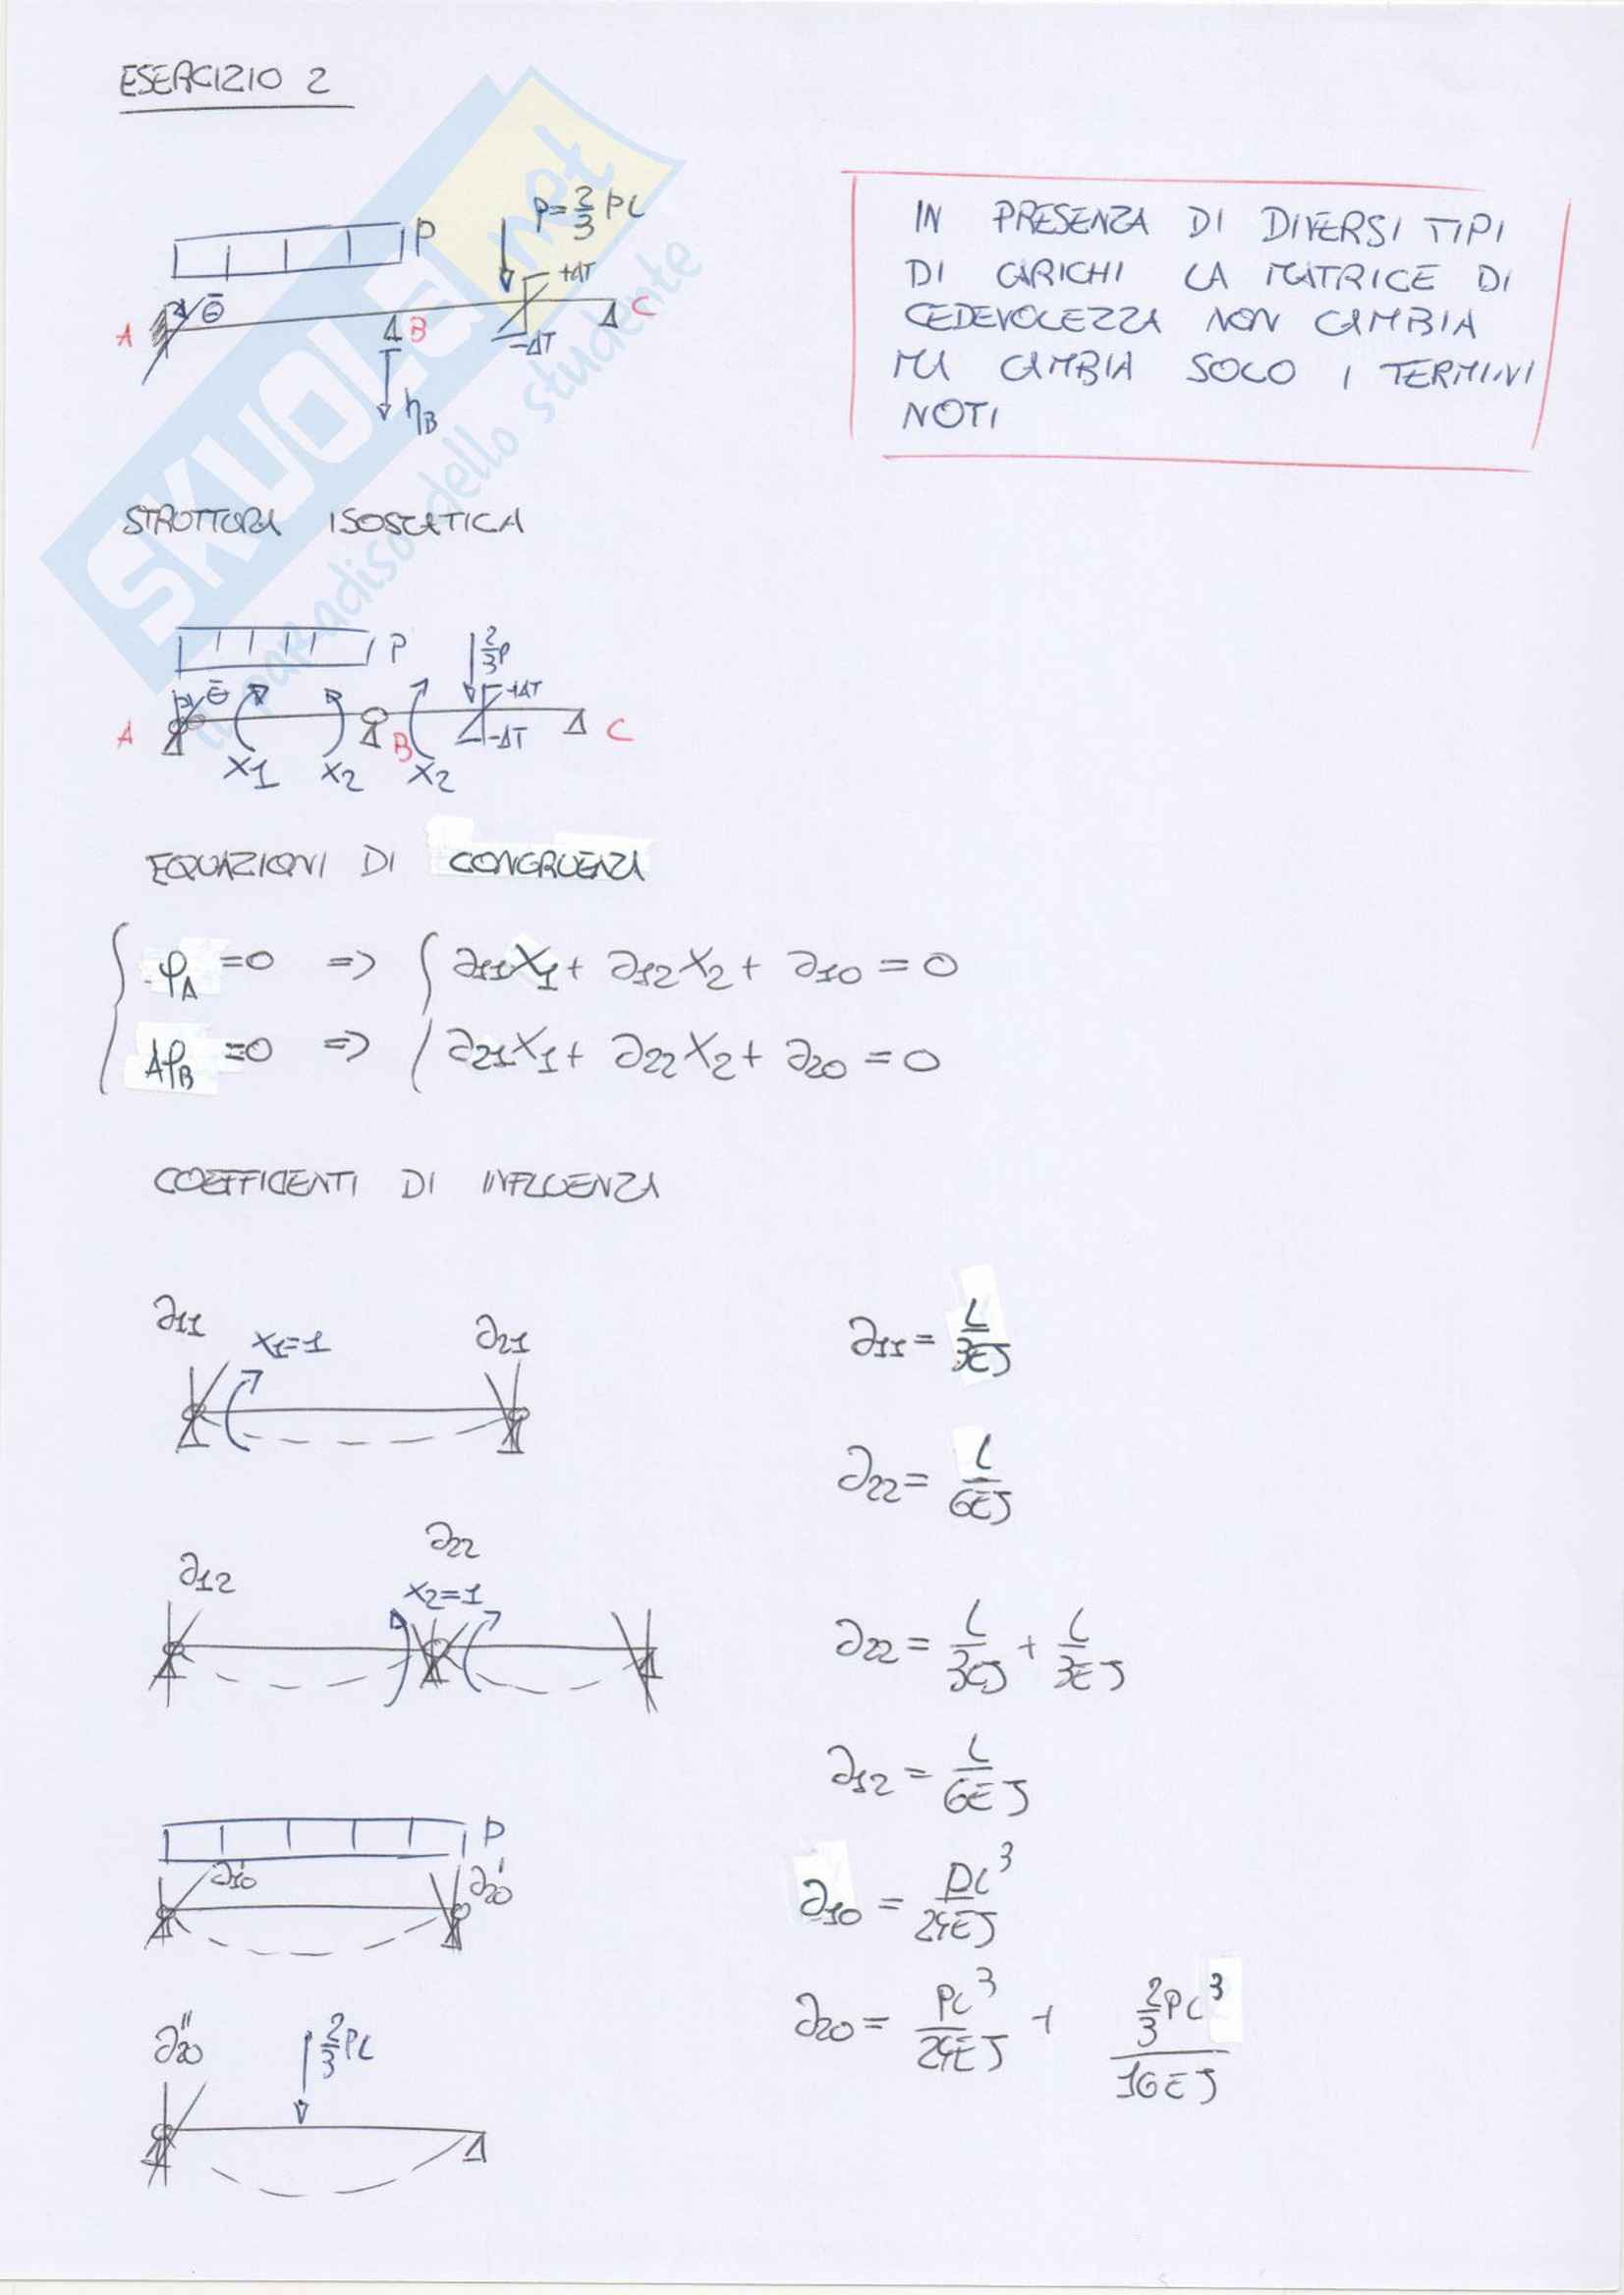 ESERCIZIO 2
SKUOLA.net
il paradiso dello studente
P = 2/3 PL
P
+ΔT
A
Θ̄
B
C
-ΔT
ηB
IN PRESENZA DI DIVERSI TIPI
DI CARICHI LA MATRICE DI
CEDEVOLEZZA NON CAMBIA
MA CAMBIA SOLO I TERMINI
NOTI
STRUTTURA ISOSTATICA
P
2/3 P
Θ̄
+ΔT
A
B
-ΔT
C
X1 X2 X2
EQUAZIONI DI CONGRUENZA
φA = 0 => ∂11X1 + ∂12X2 + ∂10 = 0
ΔφB = 0 => ∂21X1 + ∂22X2 + ∂20 = 0
COEFFICENTI DI INFLUENZA
∂11 X1=1 ∂21
∂11 = L/3EJ
∂22 = L/6EJ
∂12 ∂22
X2=1
∂22 = L/3EJ + L/3EJ
∂12 = L/6EJ
P
∂'10 ∂'20
∂10 = PL³/24EJ
∂20 = PL³/24EJ + 2/3PL³/16EJ
∂''20 2/3 PL